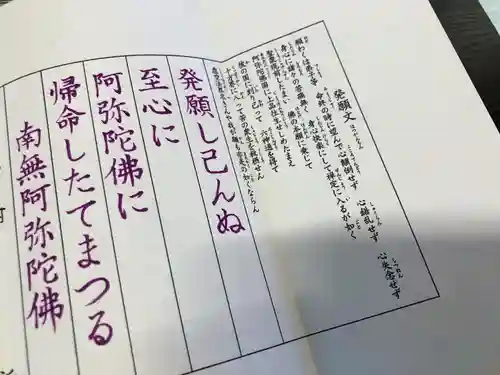 発願文
願わくは弟子等 命終の時に望んで 心顛倒せず 心錯乱せず 心失念せず
身心に諸々の苦痛無く 身心快楽にして禅定に入るが如く
聖衆現前したまい 佛の本願に乗じて
阿弥陀佛国に上品往生せしめたまえ
彼の国に到り已って 六神通を得て
十方界に入って苦の衆生を救摂せん
発願し已んぬ
至心に
阿弥陀佛に
帰命したてまつる
南無阿弥陀佛